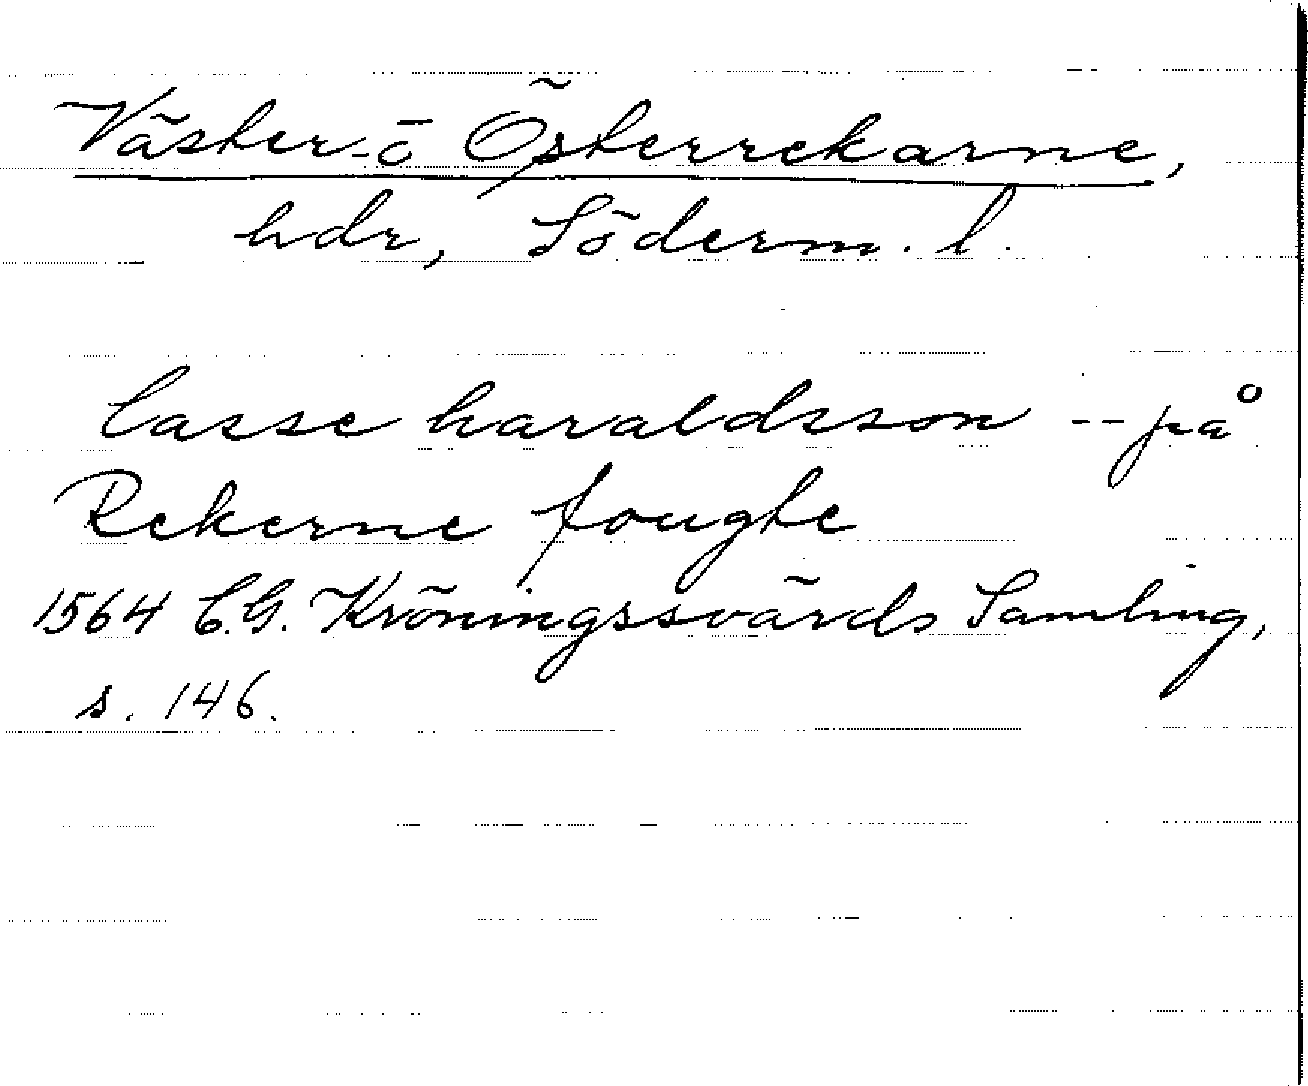 Väster-o Österrekarne,
hdr, Söderm. l.
lasse haraldsson -- på
Rekerne fougte
1564 C.G. Kröningssvärds Samling,
s. 146.